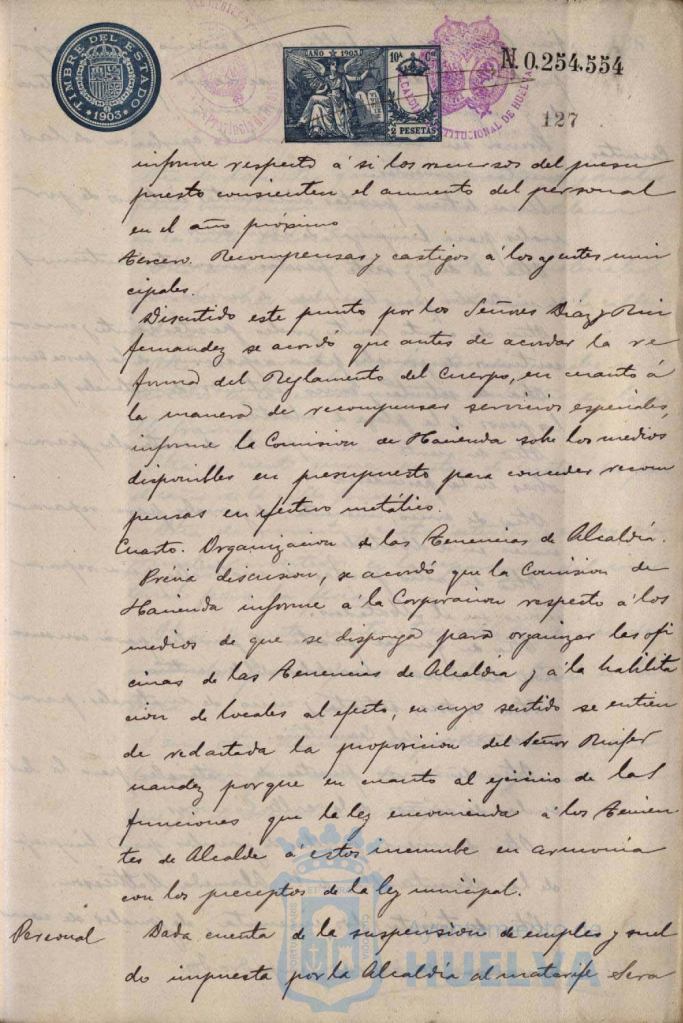 TIMBRE DEL ESTADO
1903
AÑO 1903
10ª Cª
2 PESETAS
ALCALDIA CONSTITUCIONAL DE HUELVA
N. 0.254.554
127
informe respecto á si los recursos del presu
puesto consienten el aumento del personal
en el año próximo
Tercero. Recompensas y castigos á los agentes muni
cipales.
Discutido este punto por los Señores Diaz y Rui
fernandez se acordó que antes de acordar la re
forma del Reglamento del Cuerpo, en cuanto á
la manera de recompensar servicios especiales,
informe la Comision de Hacienda sobe los medios
disponibles en presupuesto para conceder recom
pensas en efectivo metálico.
Cuarto. Organizacion de las Tenencias de Alcaldía.
Prévia discusion, se acordó que la Comision de
Hacienda informe á la Corporacion respecto á los
medios de que se disponga para organizar las ofi
cinas de las Tenencias de Alcaldia y á la habilita
cion de locales al efecto, en cuyo sentido se entien
de redactada la proposicion del Señor Ruifer
nandez porque en cuanto al ejercicio de las
funciones que la ley encomienda á los Tenien
tes de Alcalde á estos incumbe en armonía
con los preceptos de la ley municipal.
Personal
Dada cuenta de la suspension de empleo y suel
do impuesta por la Alcaldía al matarife Sera
HUELVA